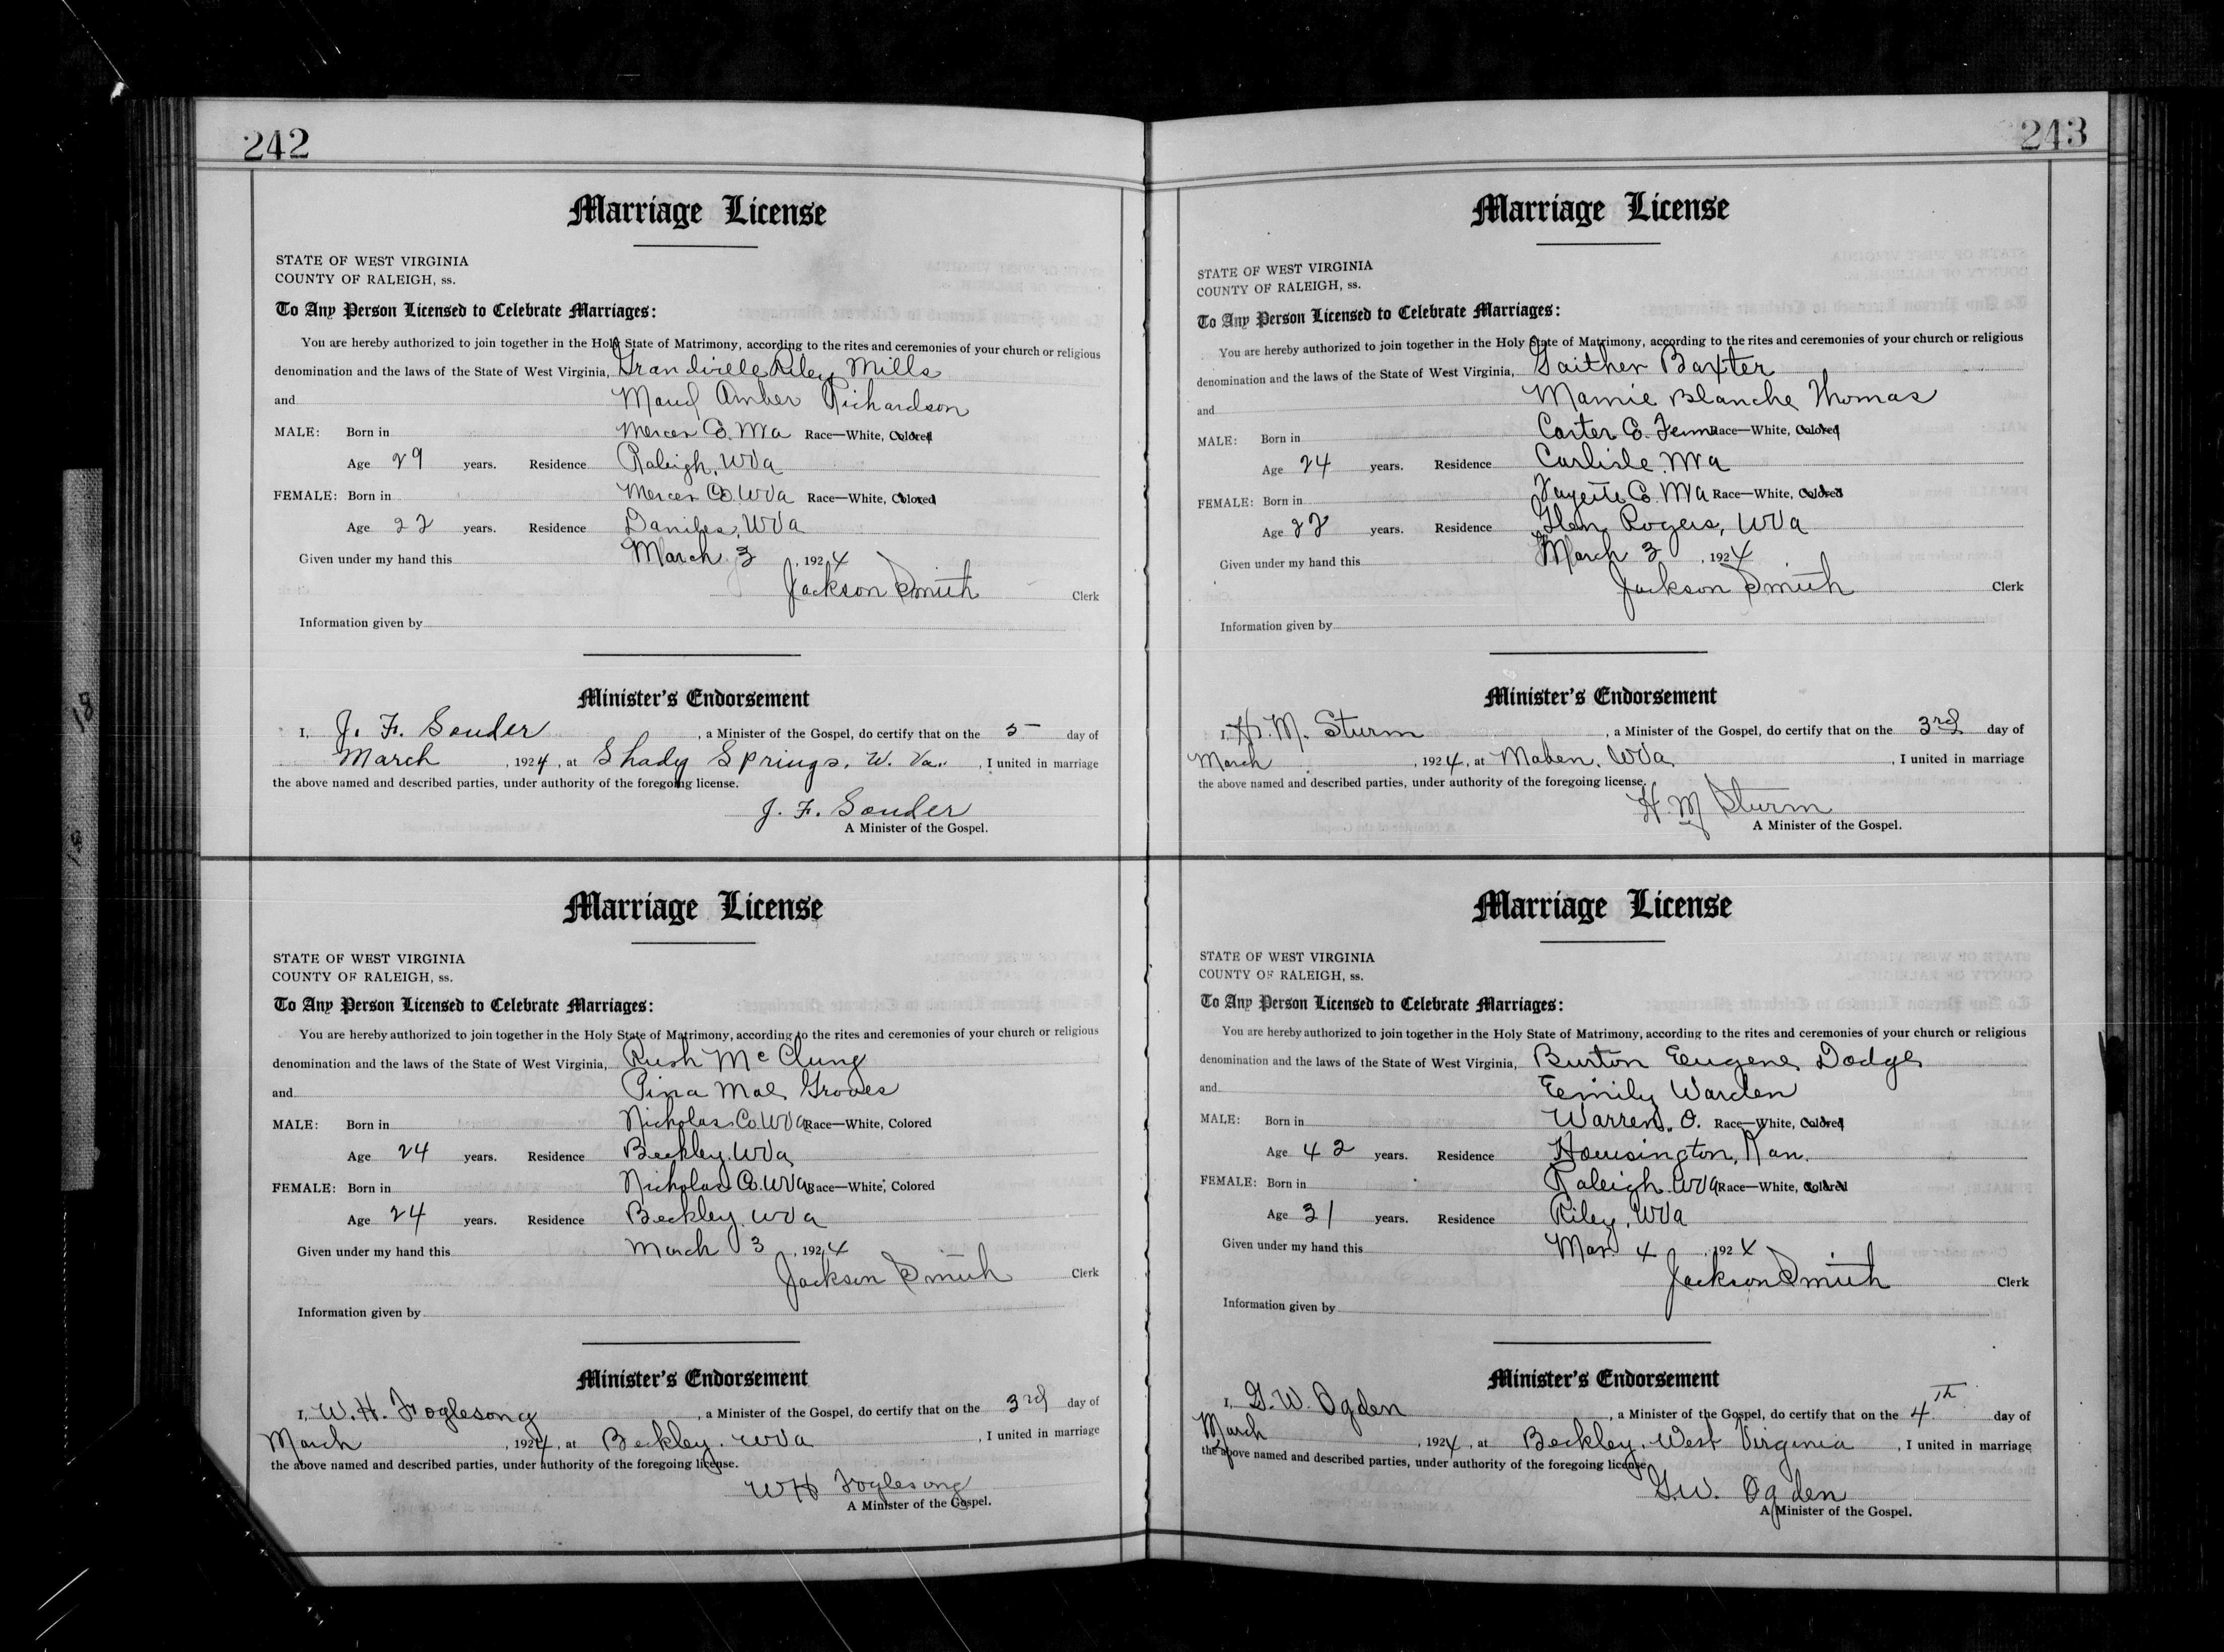 242
Marriage License
STATE OF WEST VIRGINIA
COUNTY OF RALEIGH, ss.
To Any Person Licensed to Celebrate Marriages:
You are hereby authorized to join together in the Holy State of Matrimony, according to the rites and ceremonies of your church or religious
denomination and the laws of the State of West Virginia, Grandville Riley Mills
and Maud Amber Richardson
MALE: Born in Mercer Co. WVa Race—White, Colored
Age 29 years. Residence Raleigh, WVa
FEMALE: Born in Mercer Co. WVa Race—White, Colored
Age 22 years. Residence Daniels, WVa
Given under my hand this March 3, 1924
Jackson Smith Clerk
Information given by
Minister's Endorsement
I, J. F. Souder, a Minister of the Gospel, do certify that on the 5 day of
March, 1924, at Shady Springs, W. Va., I united in marriage
the above named and described parties, under authority of the foregoing license.
J. F. Souder
A Minister of the Gospel.
Marriage License
STATE OF WEST VIRGINIA
COUNTY OF RALEIGH, ss.
To Any Person Licensed to Celebrate Marriages:
You are hereby authorized to join together in the Holy State of Matrimony, according to the rites and ceremonies of your church or religious
denomination and the laws of the State of West Virginia, Rush McClung
and Pina Mae Groves
MALE: Born in Nicholas Co. WVa Race—White, Colored
Age 24 years. Residence Beckley, WVa
FEMALE: Born in Nicholas Co. WVa Race—White, Colored
Age 24 years. Residence Beckley, WVa
Given under my hand this March 3, 1924
Jackson Smith Clerk
Information given by
Minister's Endorsement
I, W. H. Foglesong, a Minister of the Gospel, do certify that on the 3rd day of
March, 1924, at Beckley, WVa, I united in marriage
the above named and described parties, under authority of the foregoing license.
WH Foglesong
A Minister of the Gospel.
243
Marriage License
STATE OF WEST VIRGINIA
COUNTY OF RALEIGH, ss.
To Any Person Licensed to Celebrate Marriages:
You are hereby authorized to join together in the Holy State of Matrimony, according to the rites and ceremonies of your church or religious
denomination and the laws of the State of West Virginia, Gaither Baxter
and Mamie Blanche Thomas
MALE: Born in Carter Co. Tenn Race—White, Colored
Age 24 years. Residence Carlisle, WVa
FEMALE: Born in Fayette Co. WVa Race—White, Colored
Age 22 years. Residence Glen Rogers, WVa
Given under my hand this March 3, 1924
Jackson Smith Clerk
Information given by
Minister's Endorsement
I, H. M. Sturm, a Minister of the Gospel, do certify that on the 3rd day of
March, 1924, at Maben, WVa, I united in marriage
the above named and described parties, under authority of the foregoing license.
H. M Sturm
A Minister of the Gospel.
Marriage License
STATE OF WEST VIRGINIA
COUNTY OF RALEIGH, ss.
To Any Person Licensed to Celebrate Marriages:
You are hereby authorized to join together in the Holy State of Matrimony, according to the rites and ceremonies of your church or religious
denomination and the laws of the State of West Virginia, Burton Eugene Dodge
and Emily Warden
MALE: Born in Warren, O. Race—White, Colored
Age 42 years. Residence Houisington, Kan.
FEMALE: Born in Raleigh, WVa Race—White, Colored
Age 31 years. Residence Riley, WVa
Given under my hand this Mar. 4, 1924
Jackson Smith Clerk
Information given by
Minister's Endorsement
I, G. W. Ogden, a Minister of the Gospel, do certify that on the 4th day of
March, 1924, at Beckley, West Virginia, I united in marriage
the above named and described parties, under authority of the foregoing license.
G. W. Ogden
A Minister of the Gospel.